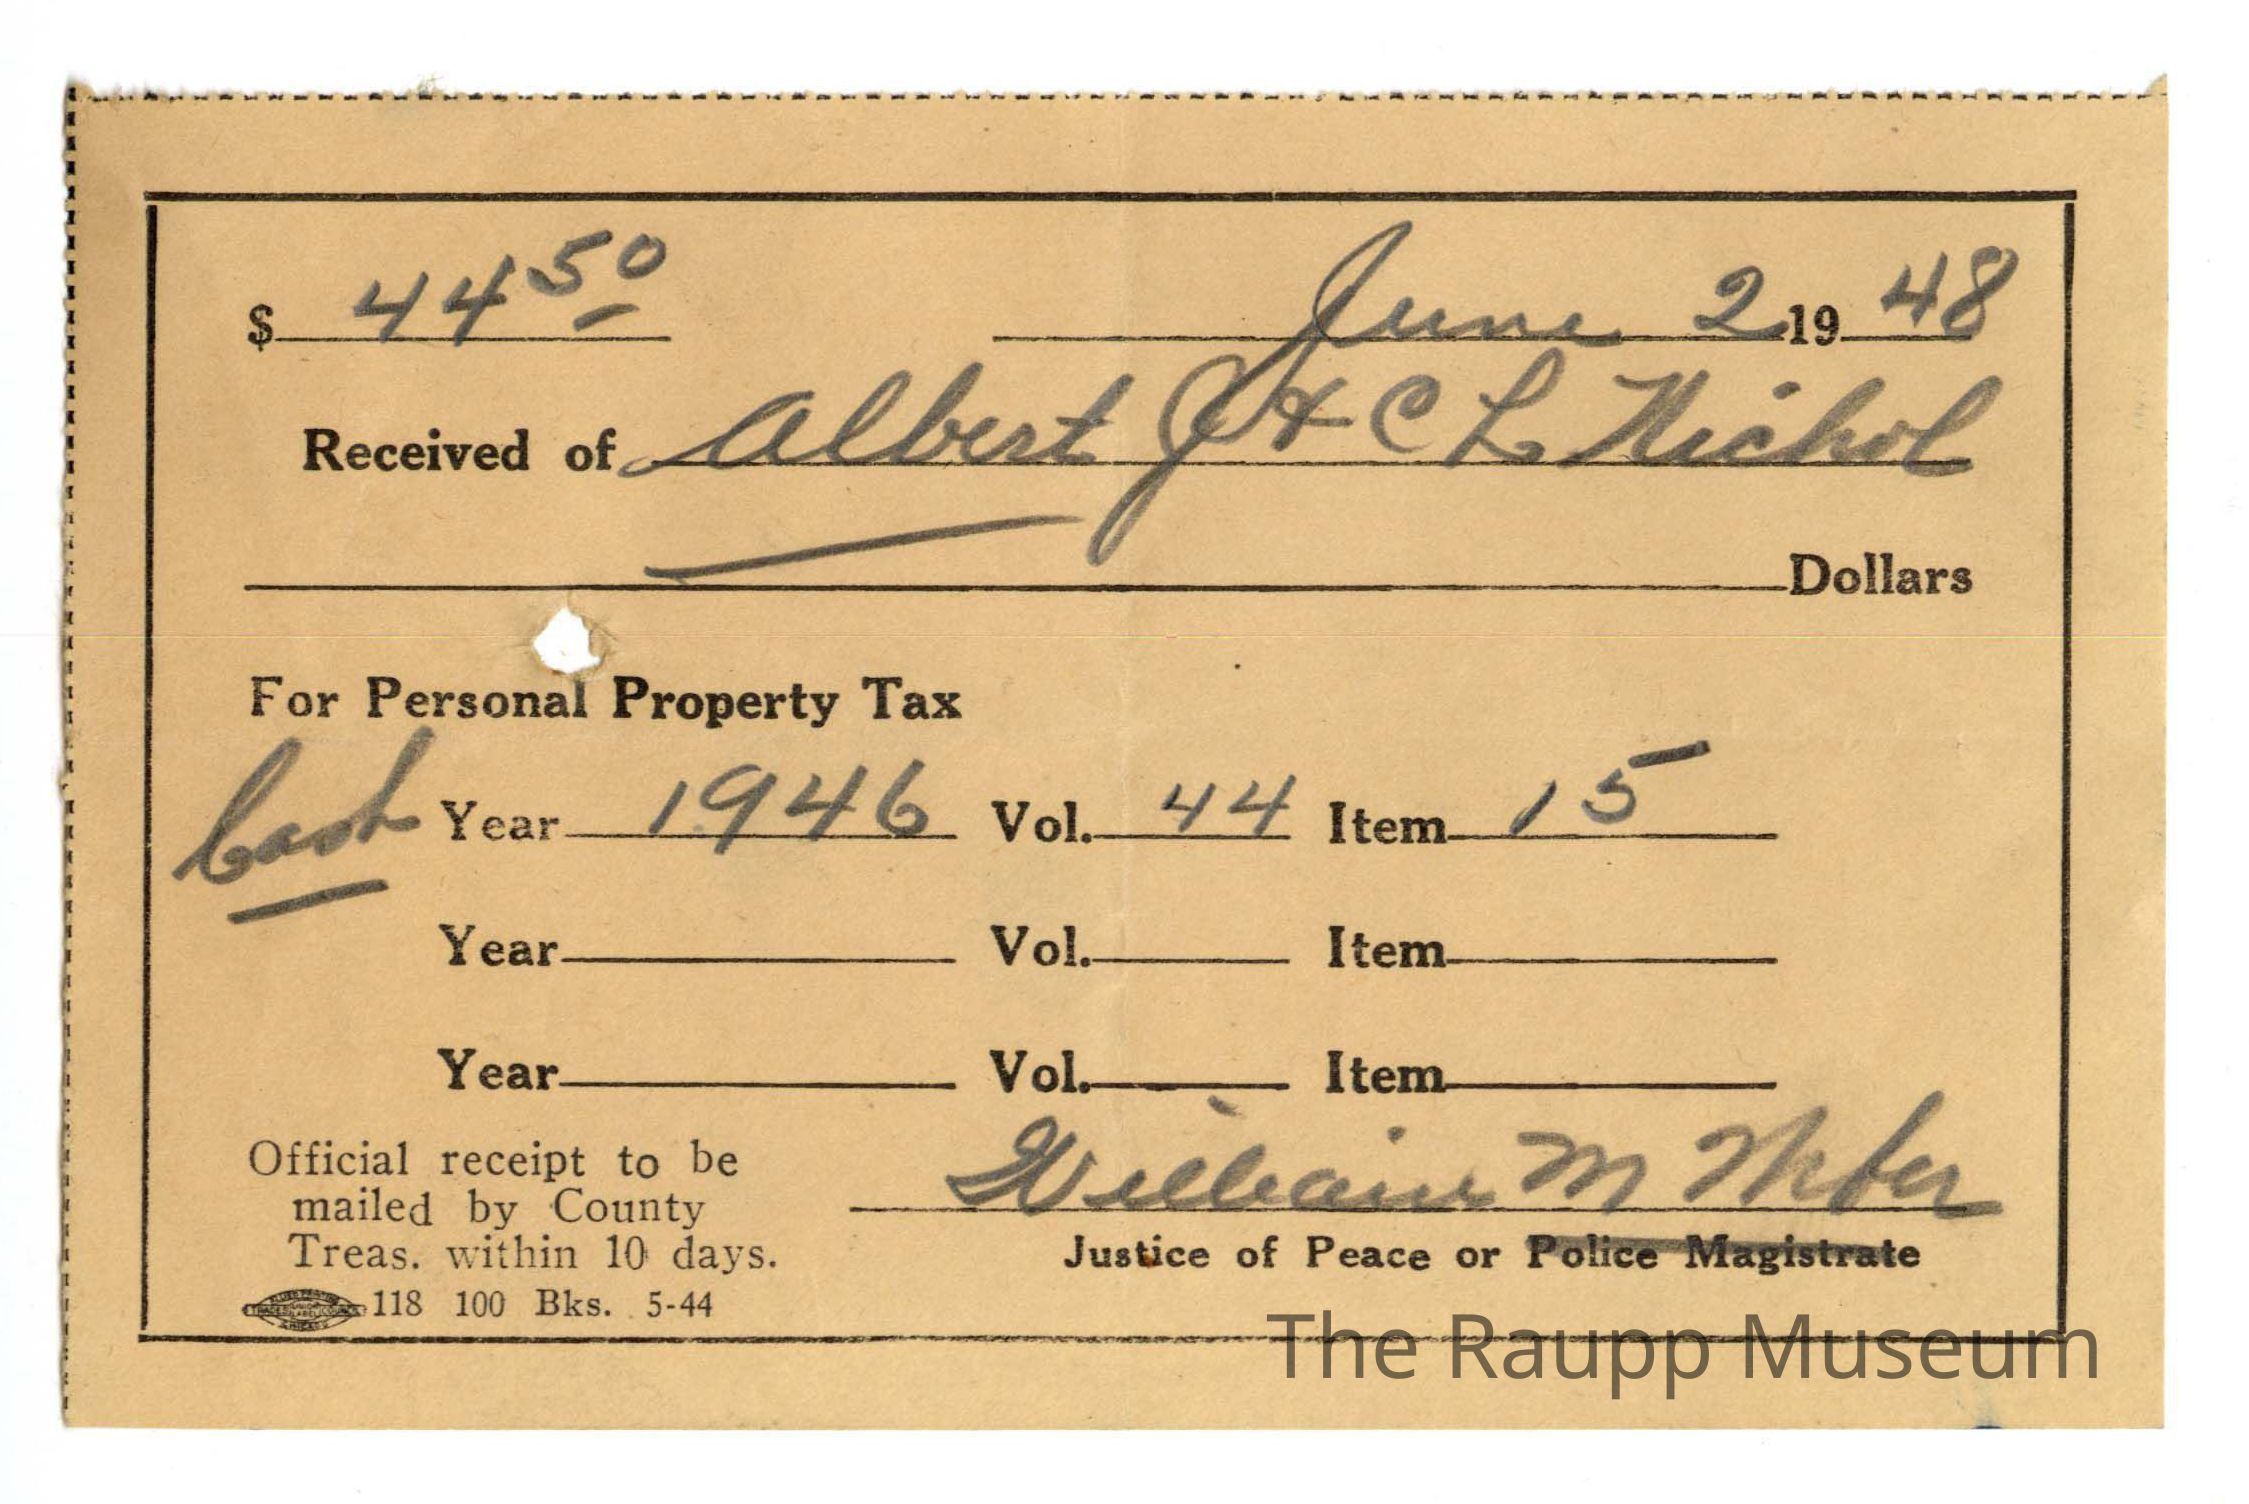 $ 44 50 June 2 19 48
Received of Albert J & C L Nichol
Dollars
For Personal Property Tax
Cash Year 1946 Vol. 44 Item 15
Year Vol. Item
Year Vol. Item
Official receipt to be
mailed by County
Treas. within 10 days.
William M
Justice of Peace or Police Magistrate
118 100 Bks. 5-44
The Raupp Museum